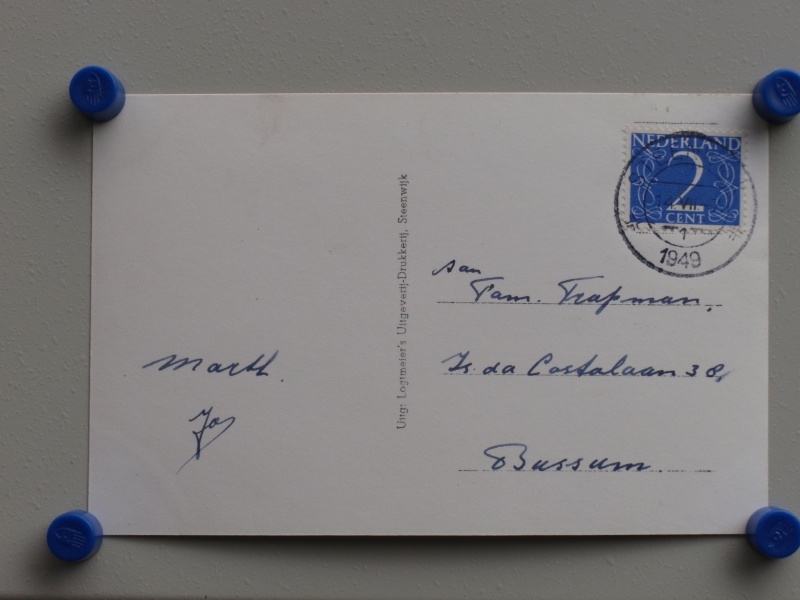 NEDERLAND
2
CENT
1
1949
aan
Fam. Trapman,
Is. da Costalaan 38,
Bussum.
Uitg: Logtmeier's Uitgeverij-Drukkerij, Steenwijk
Jos